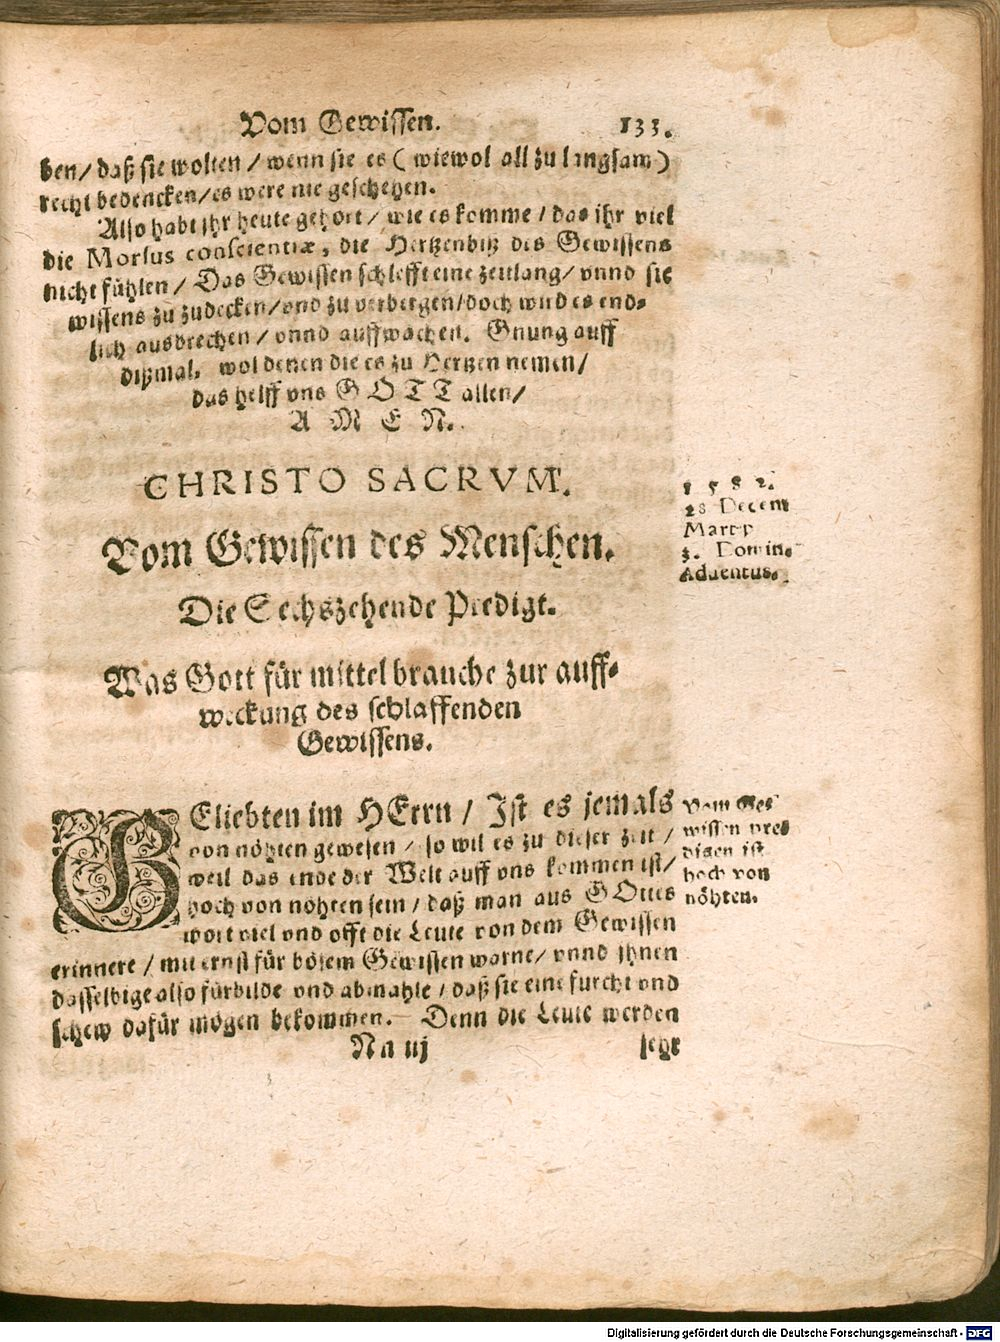 Vom Gewissen. 133.
ben/ daß sie wolten/ wenn sie es (wiewol all zu langsam)
recht bedencken/ es were nie geschehen.
Also habt ihr heute gehört/ wie es komme/ das ihr viel
die Morsus conscientiæ, die Hertzenbiß des Gewissens
nicht fühlen/ Das Gewissen schlefft eine zeitlang/ vnnd sie
wissens zu zudecken/ vnd zu verbergen/ doch wird es end-
lich ausbrechen/ vnnd auffwachen. Gnung auff
dißmal, wol denen die es zu Hertzen nemen/
das helff vns GOTT allen/
A M E N.
CHRISTO SACRVM.
1582.
28 Decem
Martp
3. Domin.
Aduentus.
Vom Gewissen des Menschen.
Die Sechszehende Predigt.
Was Gott für mittel brauche zur auff-
weckung des schlaffenden
Gewissens.
GEliebten im HErrn/ Ist es jemals
von nöhten gewesen/ so wil es zu dieser zeit/
weil das ende der Welt auff vns kommen ist/
hoch von nöhten sein/ daß man aus GOttes
wort viel vnd offt die Leute von dem Gewissen
erinnere/ mit ernst für bösem Gewissen warne/ vnnd ihnen
dasselbige also fürbilde vnd abmahle/ daß sie eine furcht vnd
schew dafür mögen bekommen. Denn die Leute werden
Vom Ges
wissen pred
digen ist
hoch von
nöhten.
Nn iij sehr
Digitalisierung gefördert durch die Deutsche Forschungsgemeinschaft - DFG